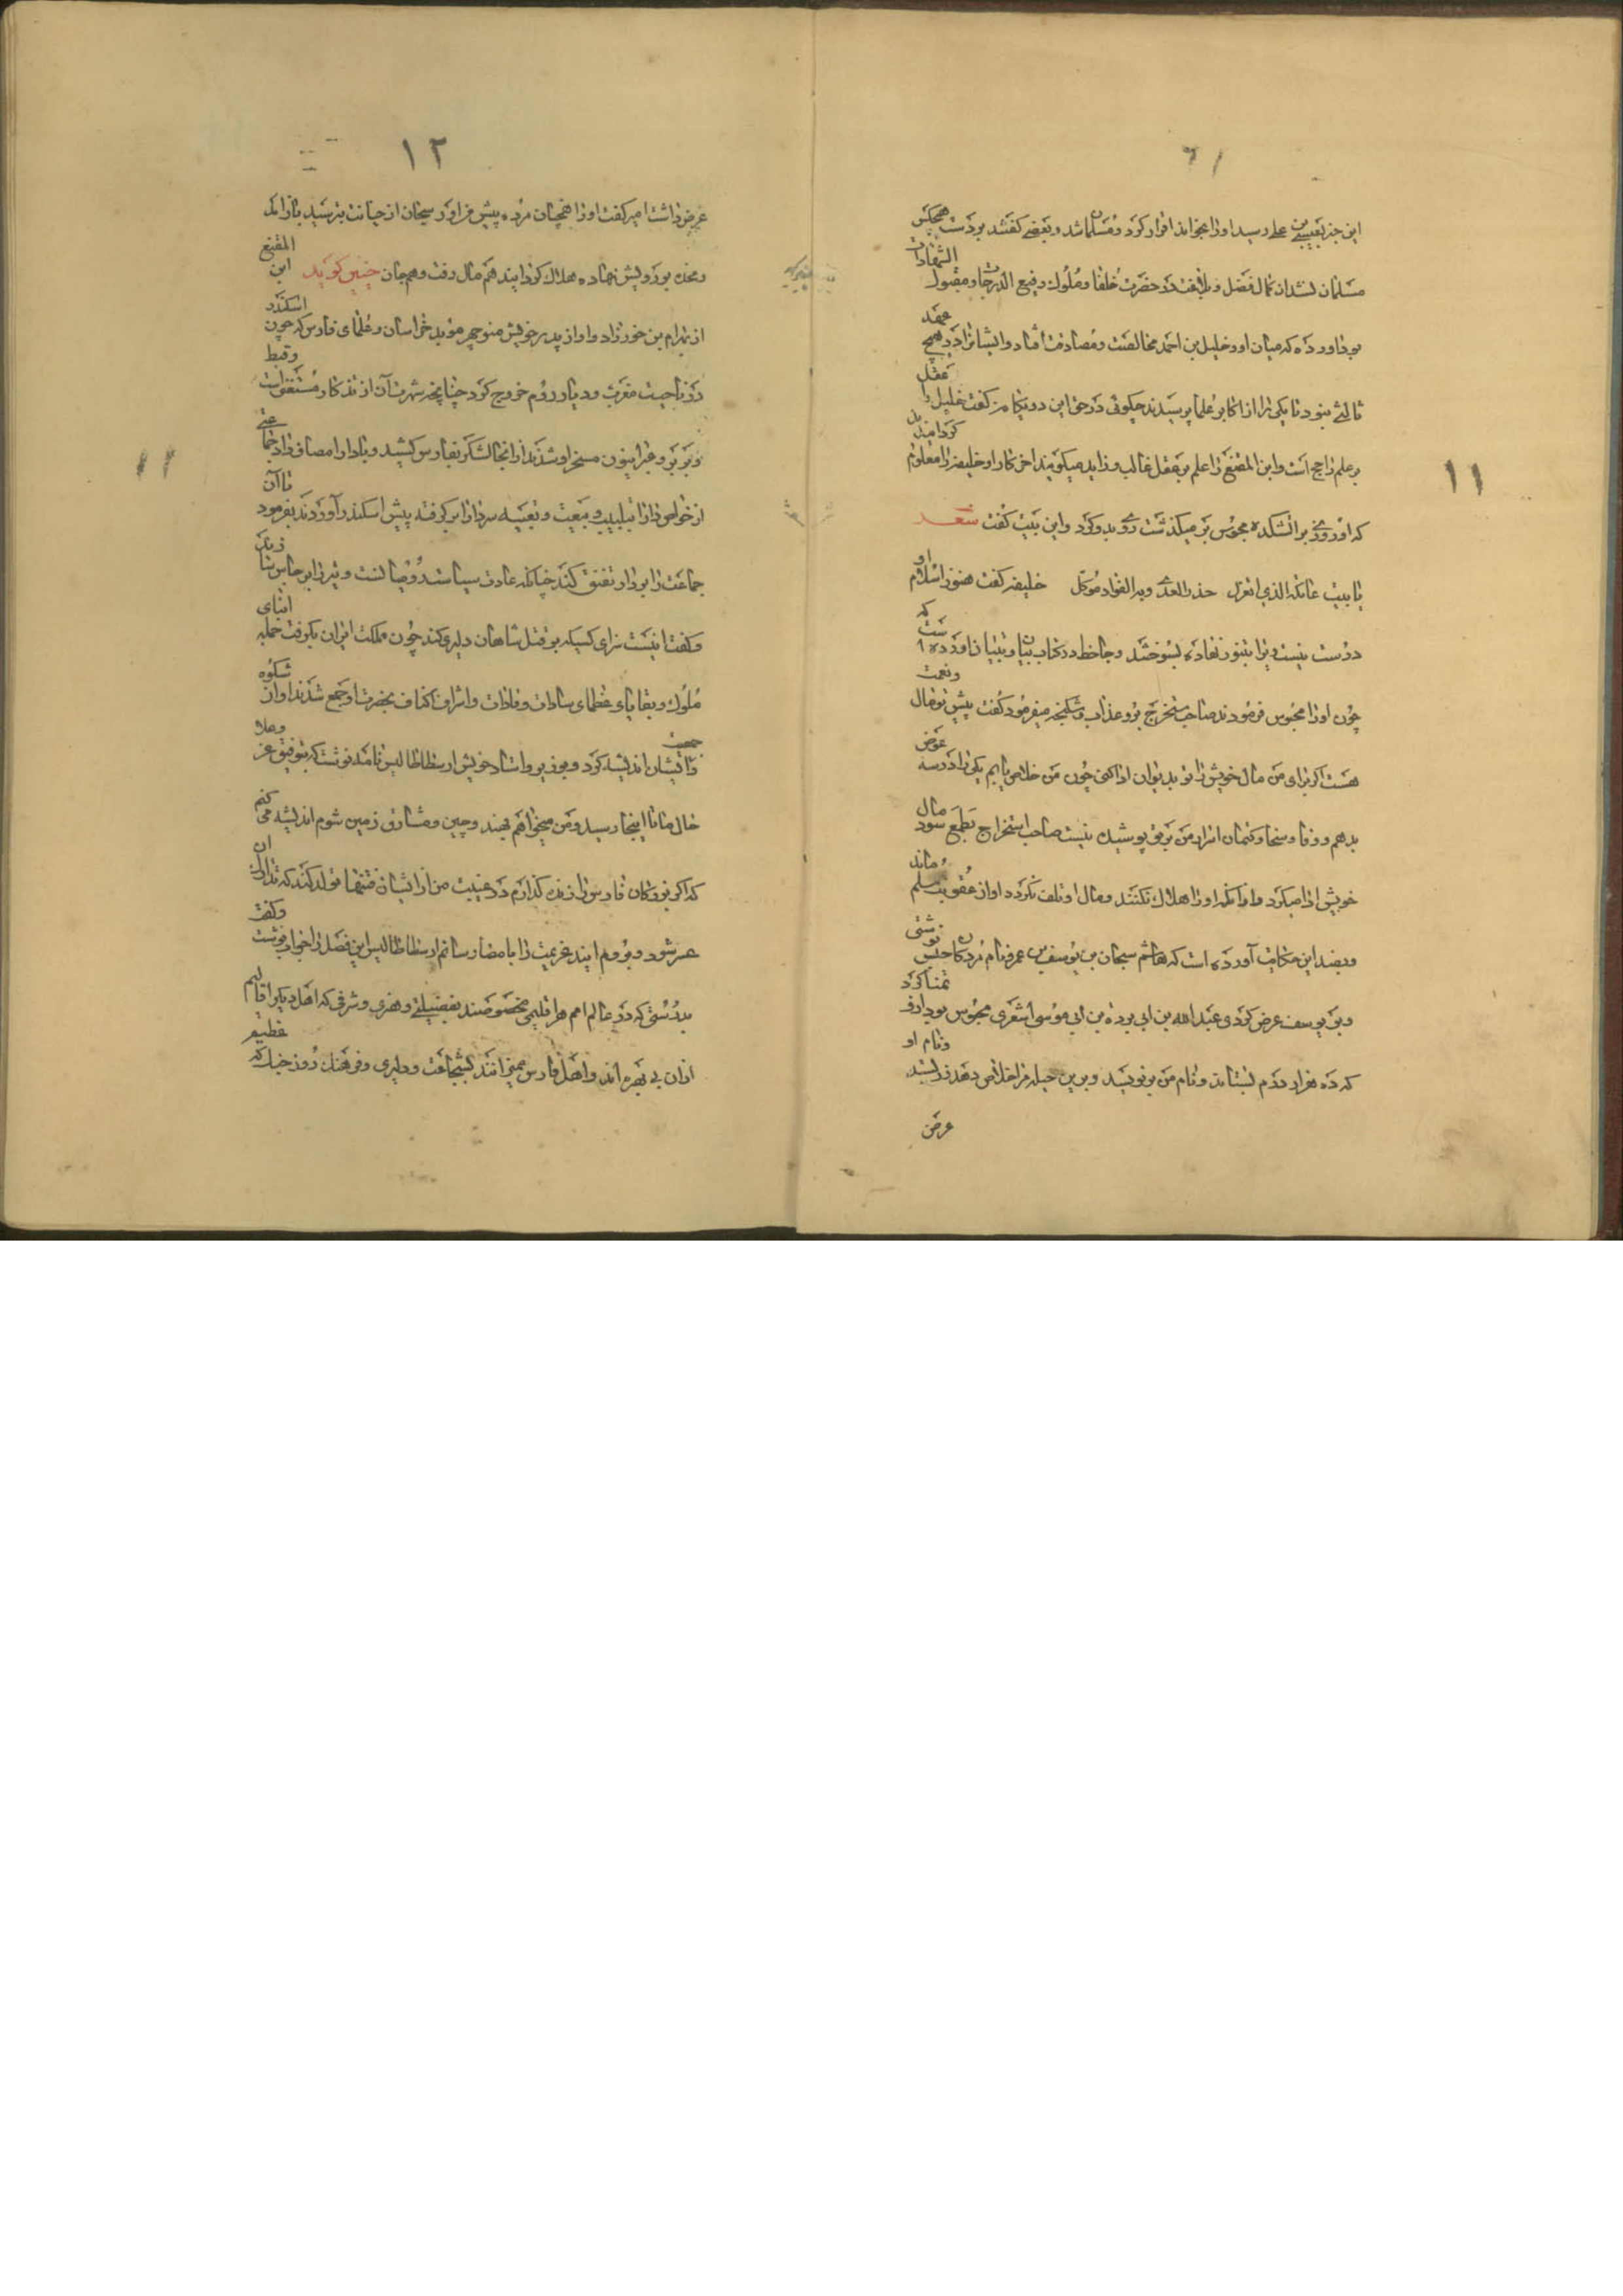 ۱۱
این خبر بعیسی بن علی رسید او را بخواند اقرار کرد و مسلمان شد و بعضی گفتند بر دست هیچکس
مسلمان نشد از کمال فضل و بلاغت در حضرت خلفا و ملوک رفیع الدرجات و مقبول الشهادات
بود آورده که میان او و خلیل بن احمد مخالصت و مصادقت افتاد و ایشانرا در هیچ عهد
ثالثی نبود تا یکی را از اکابر علما پرسیدند چگوئی در حق این دو یگانه گفت خلیل را عقل
بر علم راجح است و ابن المقفع را علم بر عقل غالب و زاید میگویند آخر کار او خلیفه را معلوم کردانیدند
که او روزی بر آتشکده مجوس بر میگذشت روی بدو کرد و این بیت گفت شعر
یا بیت عاتکة الذی اتعزل حذر العدی وبه الفؤاد موکل خلیفه گفت هنوز اسلام او
درست نیست ویرا بتنور نهاده بسوختند و جاحظ در کتاب بیان و تبیان آورده است که
چون او را محبوس فرمودند صاحب مستخرج برو عذاب و شکنجه میفرمود گفت پیش تو مال و نعمت
هست اگر برای من مال خویش را تو بدیوان ادا کنی چون من خلاص یابم یکی را در سه عوض
بدهم و وفا و سخا و کتمان اسرار من بر تو پوشیده نیست صاحب استخراج بطمع سود مال
خویش ادا میکرد و از آنکه او را هلاک نکنند و مال او تلف نگردد او از عقوبت مسلم بماند
و بضد این حکایت آورده است که هاشم سبحان بن یوسف بن عمر نام مردگان حبس نوشتی
و بر یوسف عرض کردی عبد الله بن ابی برده بن ابی موسی اشعری محبوس بود ازو تمنا کرد
که ده هزار درم بستاند و نام من بنویسد و برین حیله مرا خلاص دهد زر بستد و نام او
عرض
۱۲
عرض داشت امیر گفت او را همچنان مرده پیش من آور سبحان از خیانت بترسید باز آمد
و مخده بر رویش نهاده هلاک کردانید هم مال رفت و هم جان چنین گوید ابن المقفع
از بهرام بن خورزاد و او از پدر خویش منوچهر موبد خراسان و علمای فارس که چون اسکندر
از ناحیت مغرب و دیار روم خروج کرد چنانچه شهرت آن از تذکار مستغنی است و قبط
و بربر و عبرانیون مسخر او شدند از آنجا لشکر بفارس کشید و با دارا مصاف داد جماعتی
از خواص دارا بتلبیس و تبعیت و تعبیه سر دارا بر گرفته پیش اسکندر آوردند بفرمود تا آن
جماعت را بر دار تفنق کنند چنانکه عادت سیاست رومیانست و تیر بارانی چنانکه
و گفت اینست سزای کسیکه بر قتل شاهان دلیری کند چون مملکت ایران بگرفت جمله ابنای
ملوک و بقایای عظمای سادات و قادات و اشراف اکناف بحضرت او جمع شدند او از شکوه
و جمعیت ایشان اندیشه کرد و بوزیر و استاد خویش ارسطاطالیس نامه نوشت که بتوفیق عز و علا
حال ما تا اینجا رسید و من میخواهم بهند و چین و مشارق زمین شوم اندیشه می کنم
که اگر بزرگان فارس را زنده گذارم در غیبت من از ایشان فتنها تولد کند که تدارک آن
عسر شود و بروم آیند عزیمت را بامضا رسانم ارسطاطالیس این فصل را جواب نوشت و گفت
بدرستی که در عالم امم هر اقلیمی مخصوصند بفضیلتی و هنری و شرفی که اهل دیگر اقالیم
از آن بی بهره اند و اهل فارس ممیزانند بشجاعت و دلیری و فرهنگ روز جنگ که عظیم